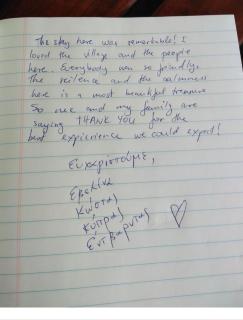 The stay here was remarkable! I
loved the village and the people
here. Everybody was so friendly.
The reilence and the calmness
here is a most beautiful treasure
So me and my family are
saying THANK YOU for the
best expierience we could expect!
Ευχαριστούμε,
Εβελίνα
Κώστας
Κύπρος
Εντβαρντας